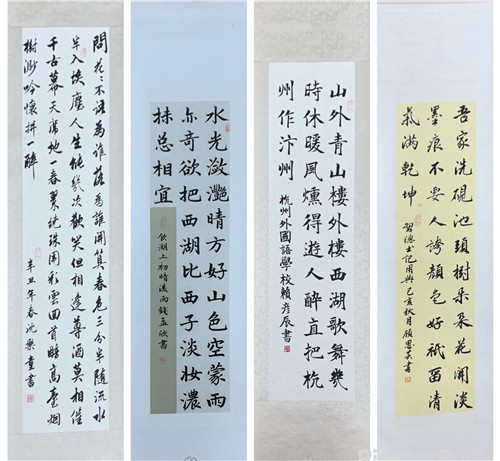 問花〻不语為誰落為誰開算春色三分半隨流水
半入埃塵人生能幾次歡笑但相逢尊酒莫相催
千古幕天席地一春翠繞珠圍彩雲回首暗高臺烟
樹渺吟懷拚一醉
辛丑年春沈樂童書
水光瀲灩晴方好山色空蒙雨
亦奇欲把西湖比西子淡妝濃
抹总相宜
飲湖上初晴後雨錢孟欣書
山外青山樓外樓西湖歌舞幾
時休暖風熏得遊人醉直把杭
州作汴州
杭州外國語學校賴彦辰書
吾家洗硯池頭樹朵朵花開淡
墨痕不要人誇顏色好祇留清
氣滿乾坤
習總书記用典己亥秋月顧恩書